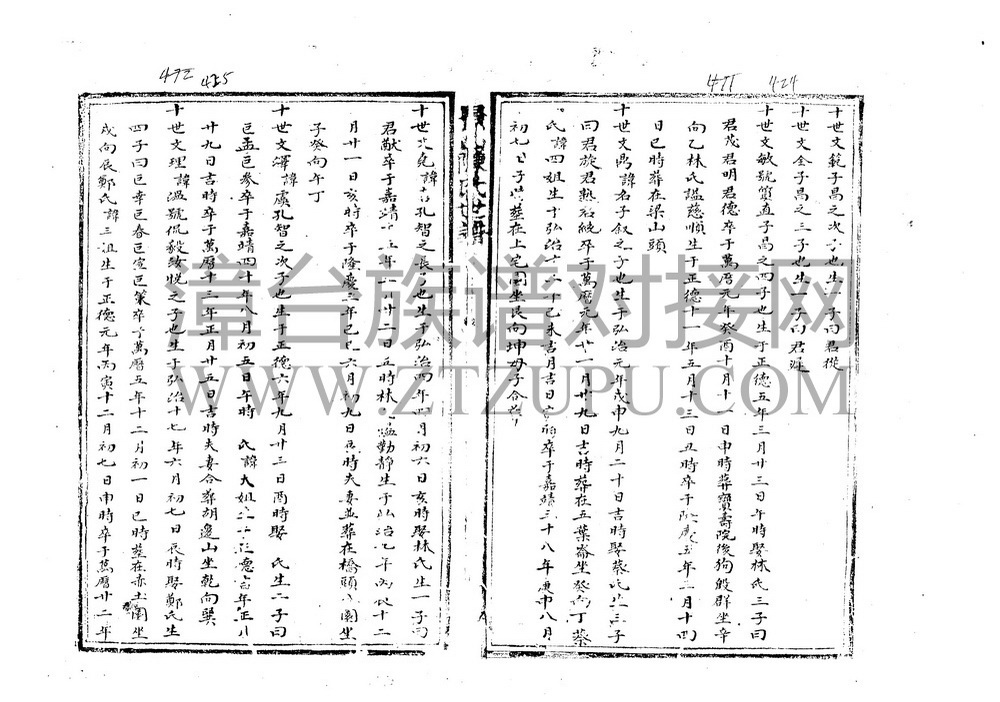 424
471
十世文範子昌之次子也生一子曰君從
十世文全子昌之三子也生一子曰君
十世文敏號質直子昌之四子也生于正德五年三月廿三日午時娶林氏三子曰
君茂君明君德卒于萬曆元年癸酉十月十一日申時葬寶壽院後狗殿群坐辛
向乙林氏謚慈順生于正德十一年五月十三日丑時卒于隆慶五年二月十四
日巳時葬在梁山頭
十世文禹諱君子叙之子也生于弘治元年戊申九月二十日吉時娶蔡氏生三子
曰君旋君熟君紋卒于萬曆元年十一月廿九日吉時葬在五葉崙坐癸向丁蔡
氏諱四姐生于弘治十二年己未吉月吉日吉時卒于嘉靖三十八年庚申八月
初七日子時葬在上宅園坐艮向坤母子合
425
472
十世文 諱 孔智之長子也生于弘治四年四月初六日亥時娶林氏生一子曰
君猷卒于嘉靖十 年 月廿二日 時林氏謚勤靜生于弘治九年丙辰十二
月廿一日亥時卒于隆慶三年己巳六月初九日 時夫妻並葬在橋頭 園坐
子癸向午丁
十世文澤諱虞孔智之次子也生于正德六年九月廿三日酉時娶 氏生二子曰
巨孟巨參卒于嘉靖四十年八月初五日午時 氏諱大姐生于 年正月
廿九日吉時卒于萬曆十三年正月廿五日吉時夫妻合葬胡邊山坐乾向巽
十世文理諱溫號侃毅汝悅之子也生于弘治十七年六月初七日辰時娶鄭氏生
四子曰巨幸巨春巨宣巨策卒于萬曆五年十二月初一日巳時葬在赤土園坐
戌向辰鄭氏諱三姐生于正德元年丙寅十二月初七日申時卒于萬曆廿二年
漳台族谱对接网
WWW.ZTZUPU.COM